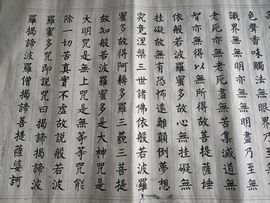 色聲香味觸法無眼界乃至無
識界無無明亦無無明盡乃至無
老死亦無老死盡無苦集滅道無
智亦無得以無所得故菩提薩埵
依般若波羅蜜多故心無罣礙無
罣礙故無有恐怖遠離顛倒夢想
究竟涅槃三世諸佛依般若波羅
蜜多故得阿耨多羅三藐三菩提
故知般若波羅蜜多是大神咒是
大明咒是無上咒是無等等咒能
除一切苦真實不虛故說般若波
羅蜜多咒即說咒曰揭諦揭諦波
羅揭諦波羅僧揭諦菩提薩婆訶